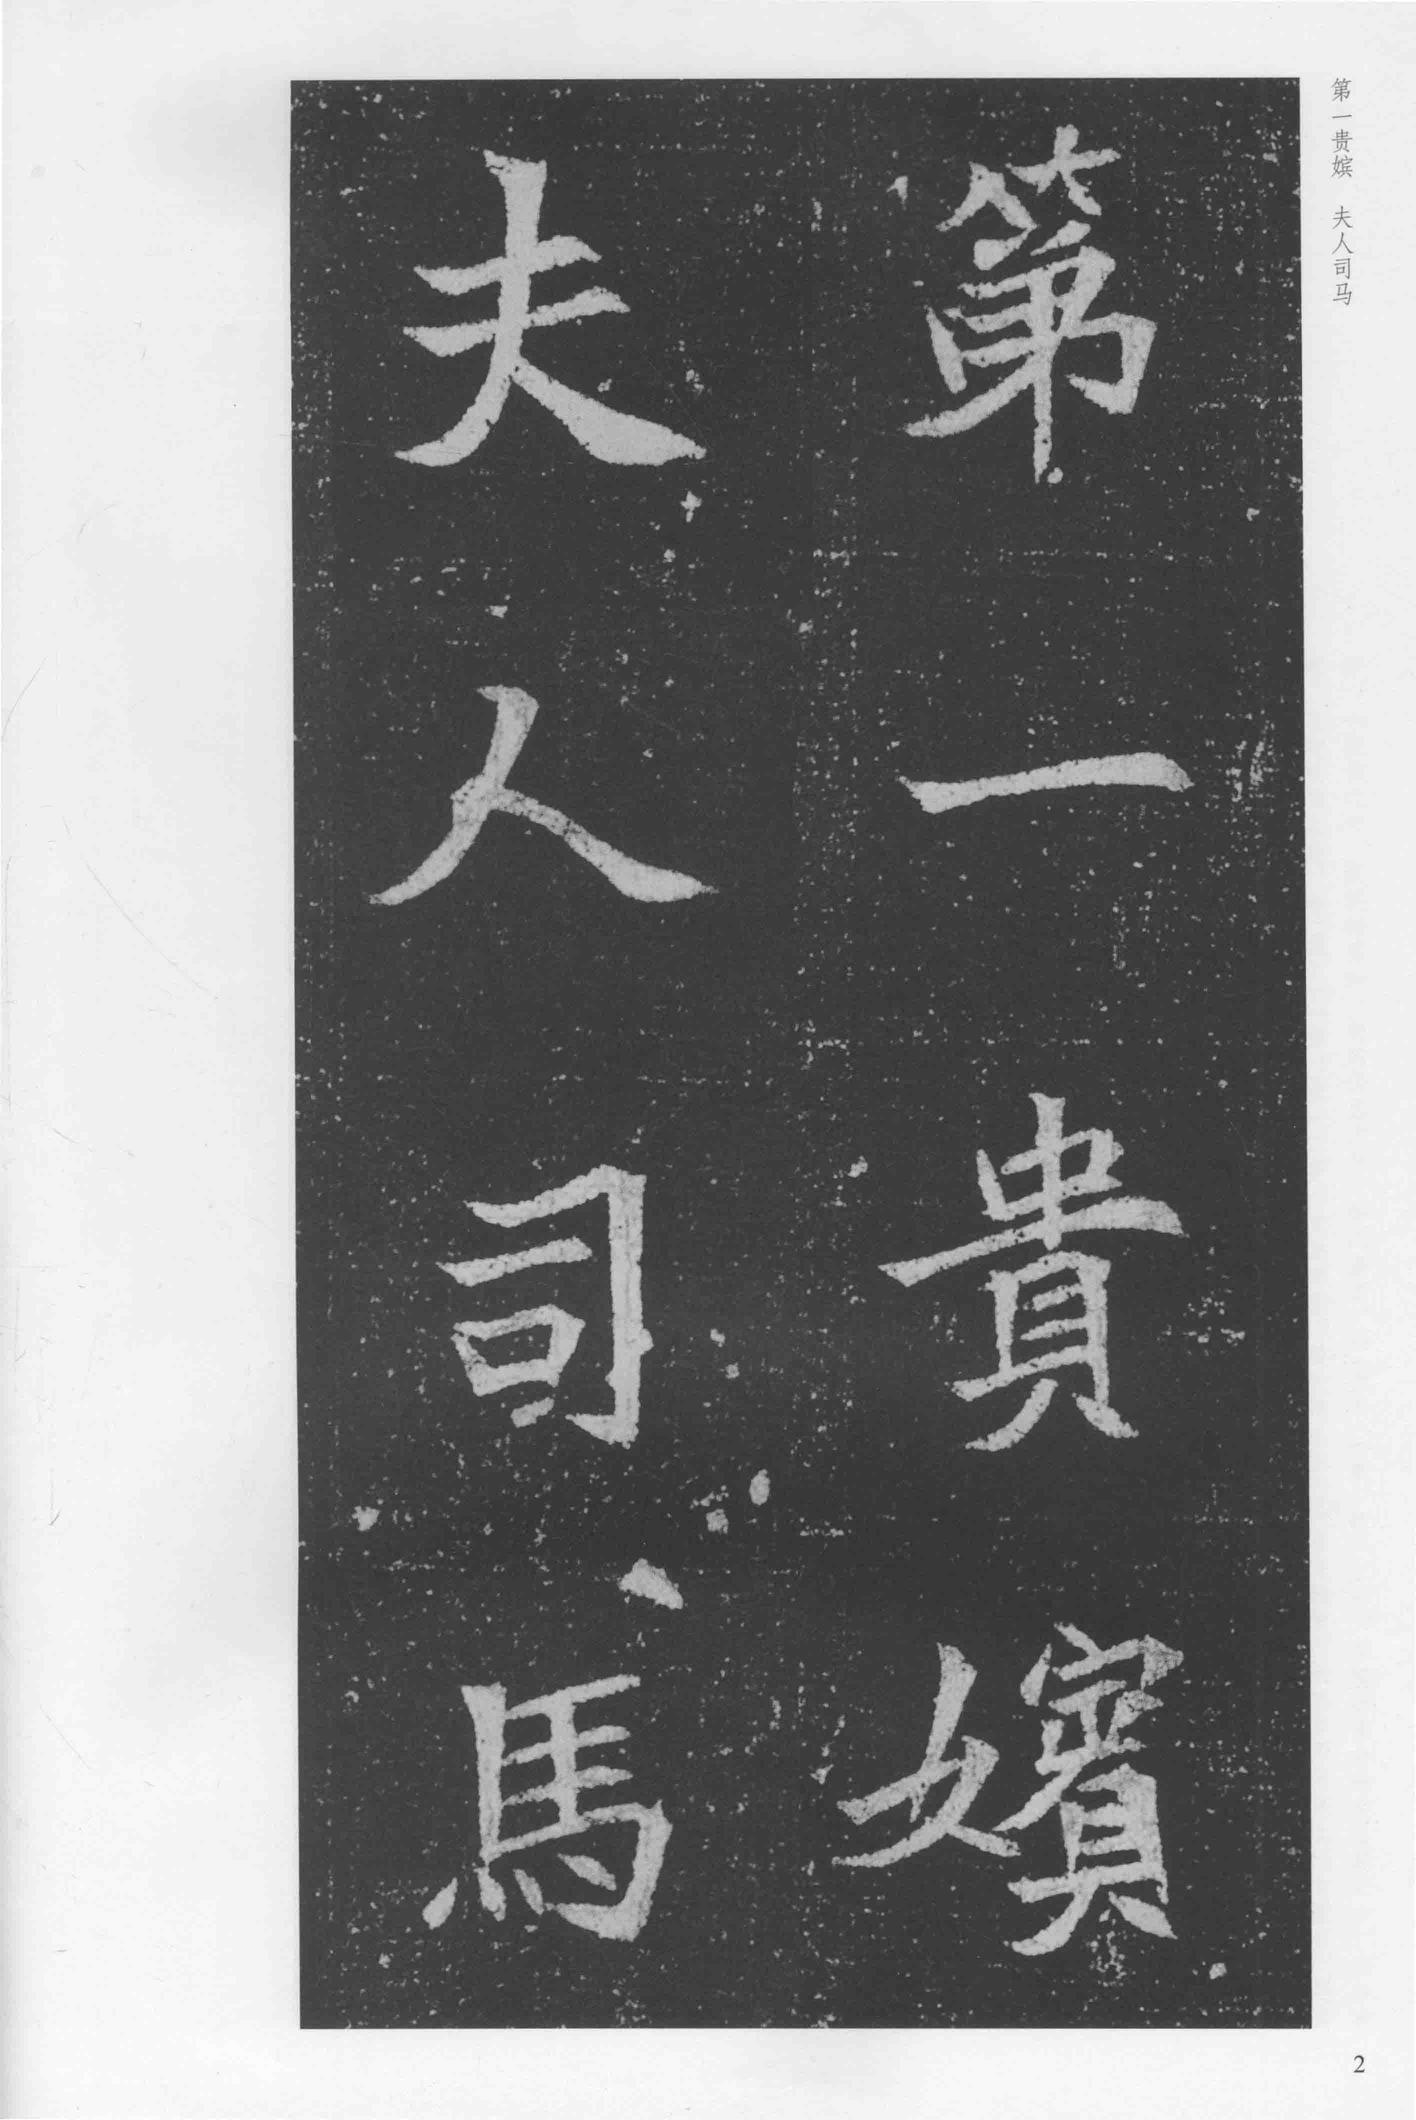 第一贵嫔 夫人司马
第一貴嬪
夫人司馬
2